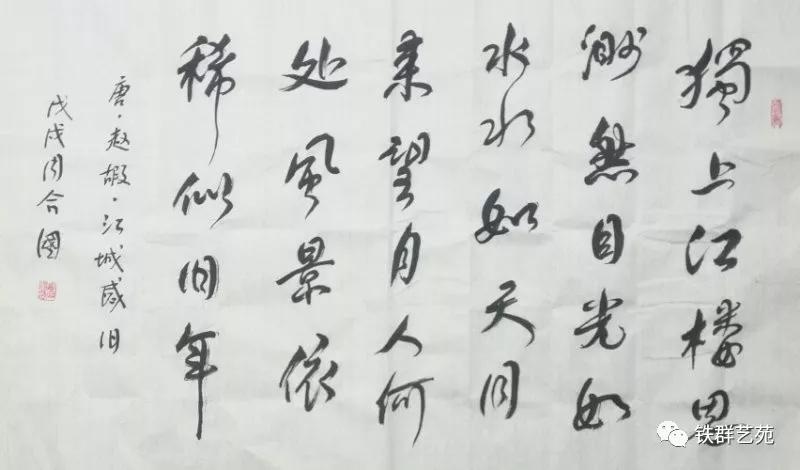 獨上江楼思
渺然月光如
水水如天同
来望月人何
处風景依
稀似旧年
唐·赵嘏·江城感旧
戊戌周合國
铁群艺苑